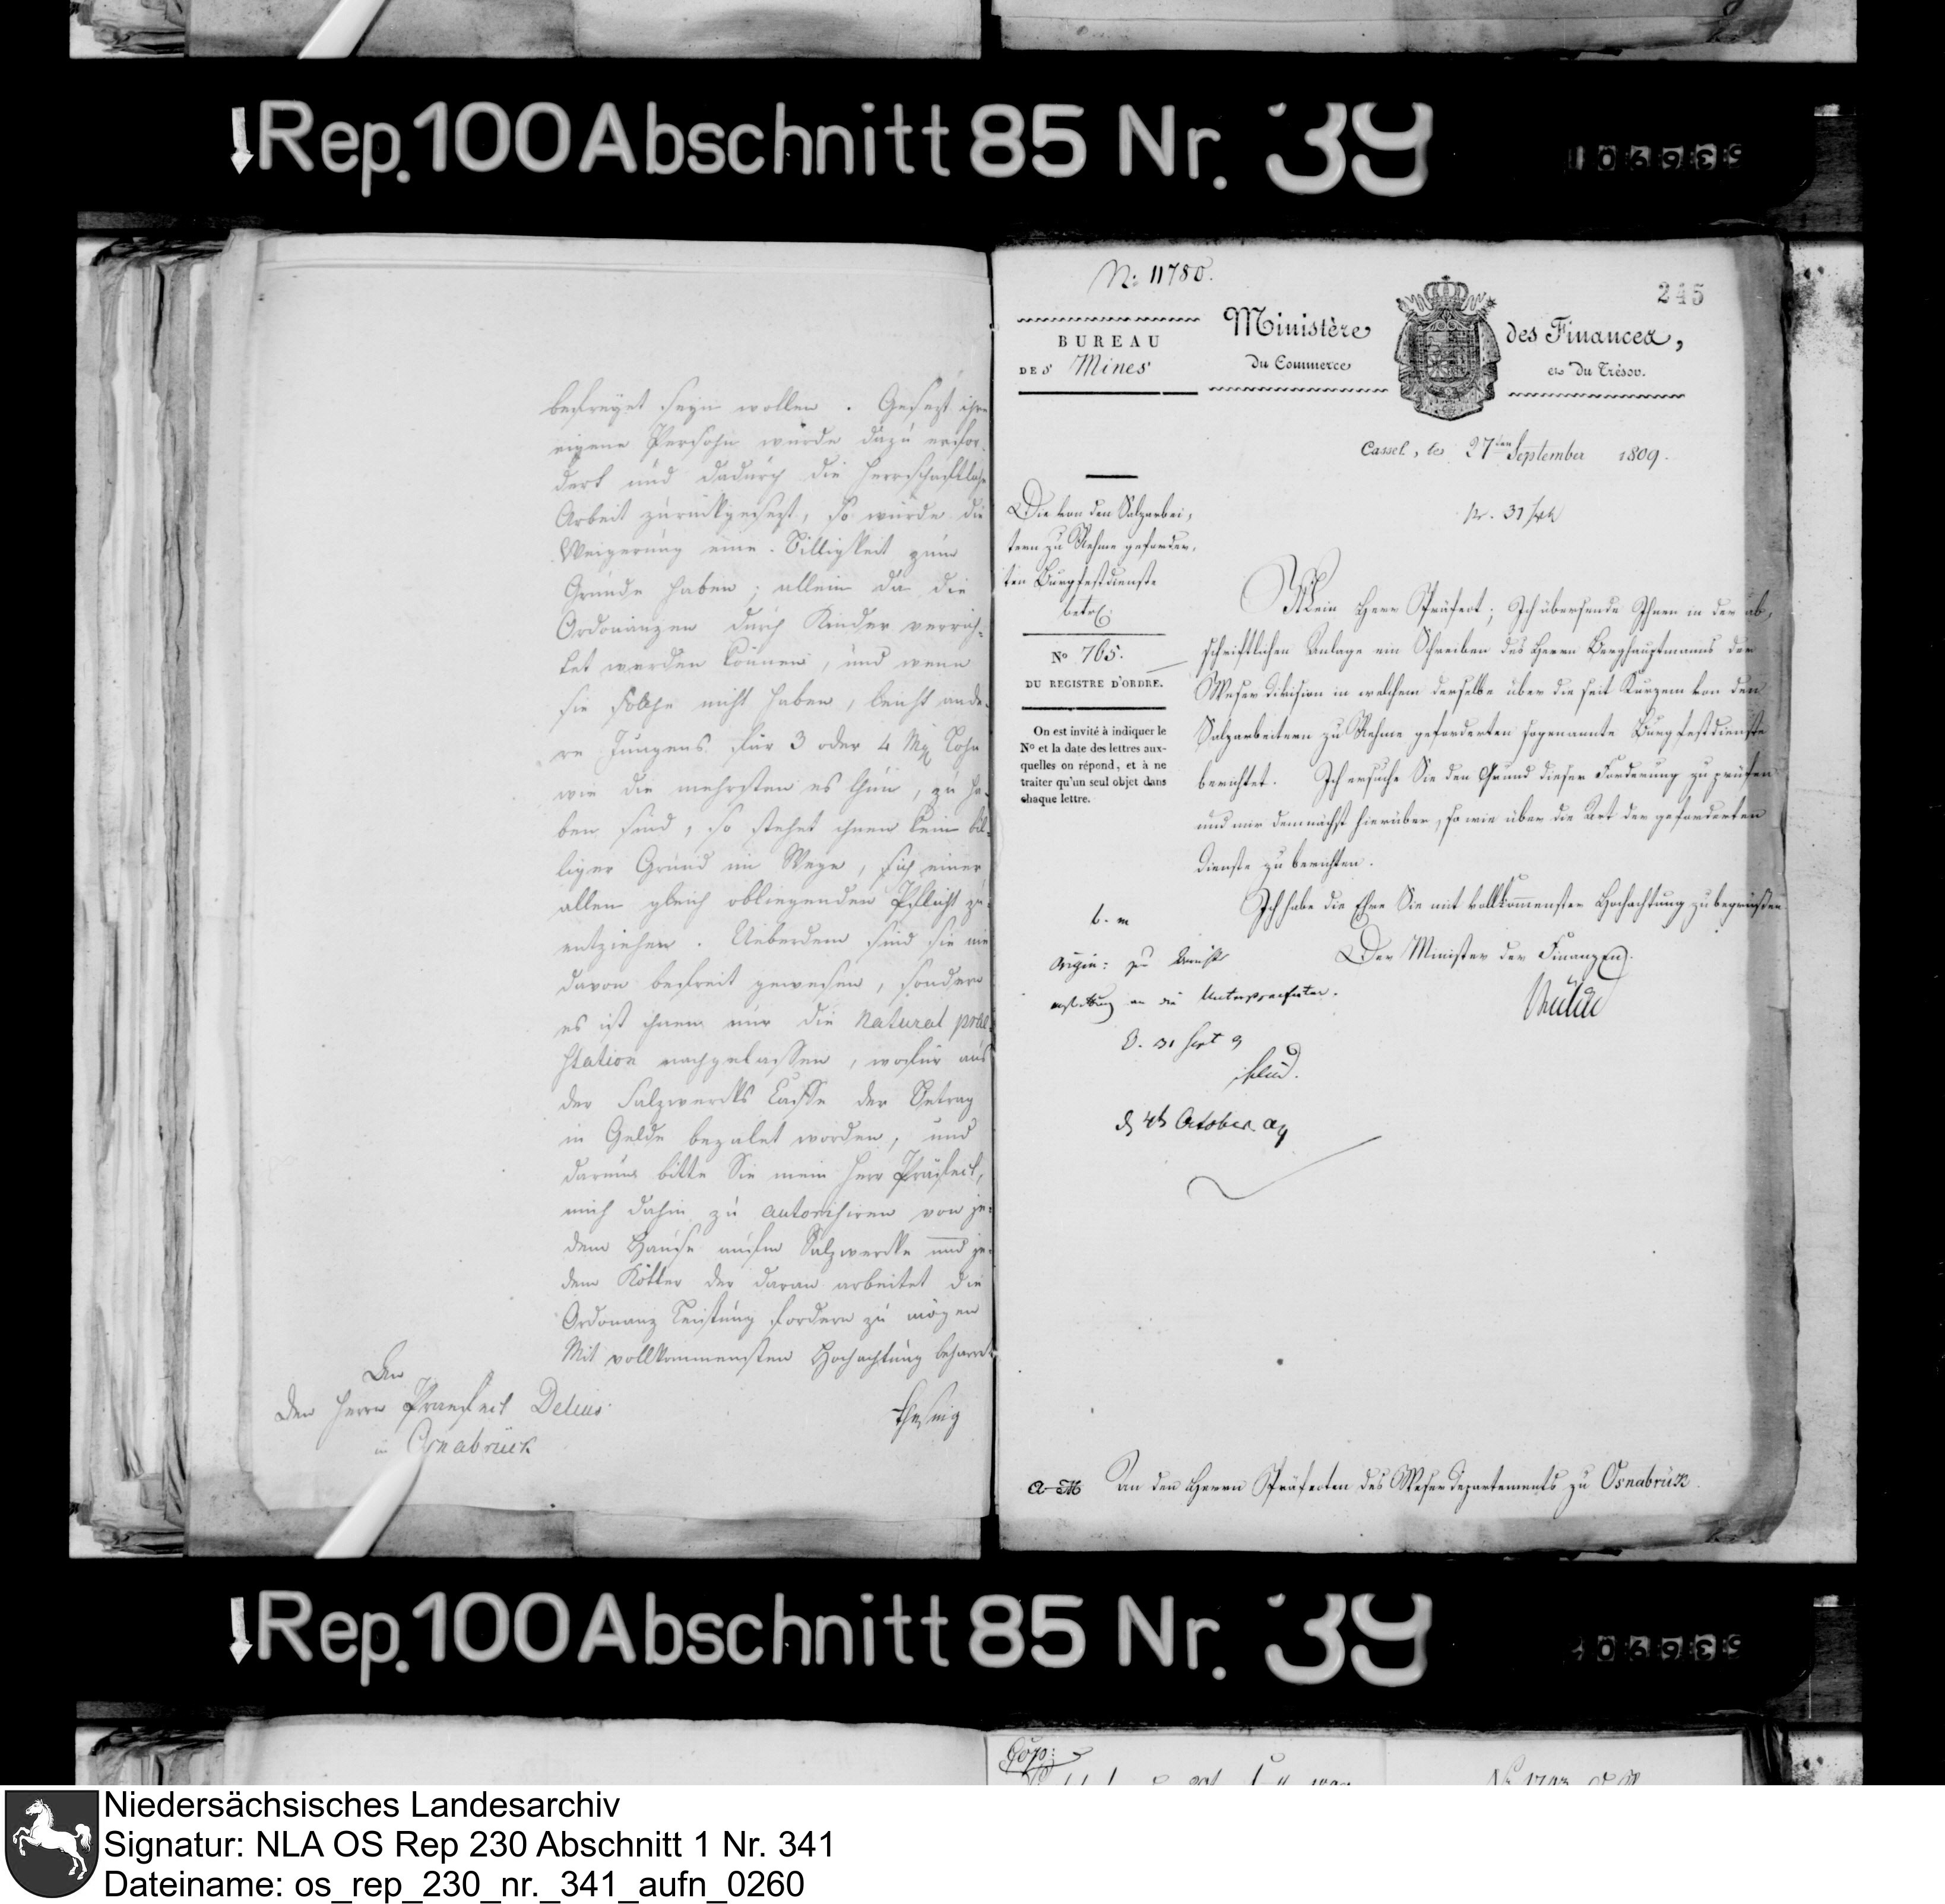 Rep. 100 Abschnitt 85 Nr. 39
106939
befreyet seyn wollen. Gesezt ihre
eigene Persohn würde dazu erfor-
dert und dadurch die herrschaftliche
Arbeit zurückgesezt, so würde die
Weigerung eine Billigkeit zum
Grunde haben; allein da die
Ordonanzen durch Kinder verrich-
tet werden können, und wenn
sie solche nicht haben, leicht ande-
re Jungens für 3 oder 4 Mg Lohn
wie die mehrsten es thun, zu ha-
ben sind, so stehet ihnen kein bil-
liger Grund im Wege, sich einer
allen gleich obliegenden Pflicht zu
entziehen. Ueberdem sind sie nie
davon befreit gewesen, sondern
es ist ihnen nur die Natural prae-
station nachgelassen, wofür aus
der Salzwercks Casse der Betrag
in Gelde bezalet worden, und
darum bitte Sie mein Herr Präfect,
mich dahin zu autorisiren von je-
dem Hause aufm Salzwercke und je-
dem Kötter der daran arbeitet die
Ordonanz Leistung fordern zu mögen
Mit vollkommensten Hochachtung beharret
An
den Herrn Praefect Delius
in Osnabrück
N: 11780.
245
BUREAU
DES Mines
Ministère des Finances,
du Commerce et du Trésor.
Cassel, le 27ten September 1809.
Die von den Salzarbei-
tern zu Rehme geforder-
ten Burgfestdienste
betr.
No 765.
DU REGISTRE D'ORDRE.
On est invité à indiquer le
No et la date des lettres aux-
quelles on répond, et à ne
traiter qu'un seul objet dans
chaque lettre.
Mein Herr Präfect; Ich übersende Ihnen in der ab-
schriftlichen Anlage ein Schreiben des Herrn Berghauptmanns der
Weser Division in welchem derselbe über die seit Kurzem von den
Salzarbeitern zu Rehme geforderten sogenannte Burgfestdienste
berichtet. Ich ersuche Sie den Grund dieser Forderung zu prüfen
und mir demnächst hierüber, so wie über die Art der geforderten
Dienste zu berichten.
Ich habe die Ehre Sie mit vollkommenster Hochachtung zu begrüßen
Der Minister der Finanzen.
b. m
Origin: zur Bericht
erstattung an die Unterpraefectur.
O. 31 Sept 9
d 4t October. 09
An den Herrn Präfecten des Weserdepartements zu Osnabrück.
Rep. 100 Abschnitt 85 Nr. 39
06939
Cop:
Niedersächsisches Landesarchiv
Signatur: NLA OS Rep 230 Abschnitt 1 Nr. 341
Dateiname: os_rep_230_nr._341_aufn_0260